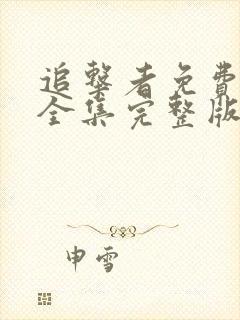 追击者免费
全集完整版
申雪